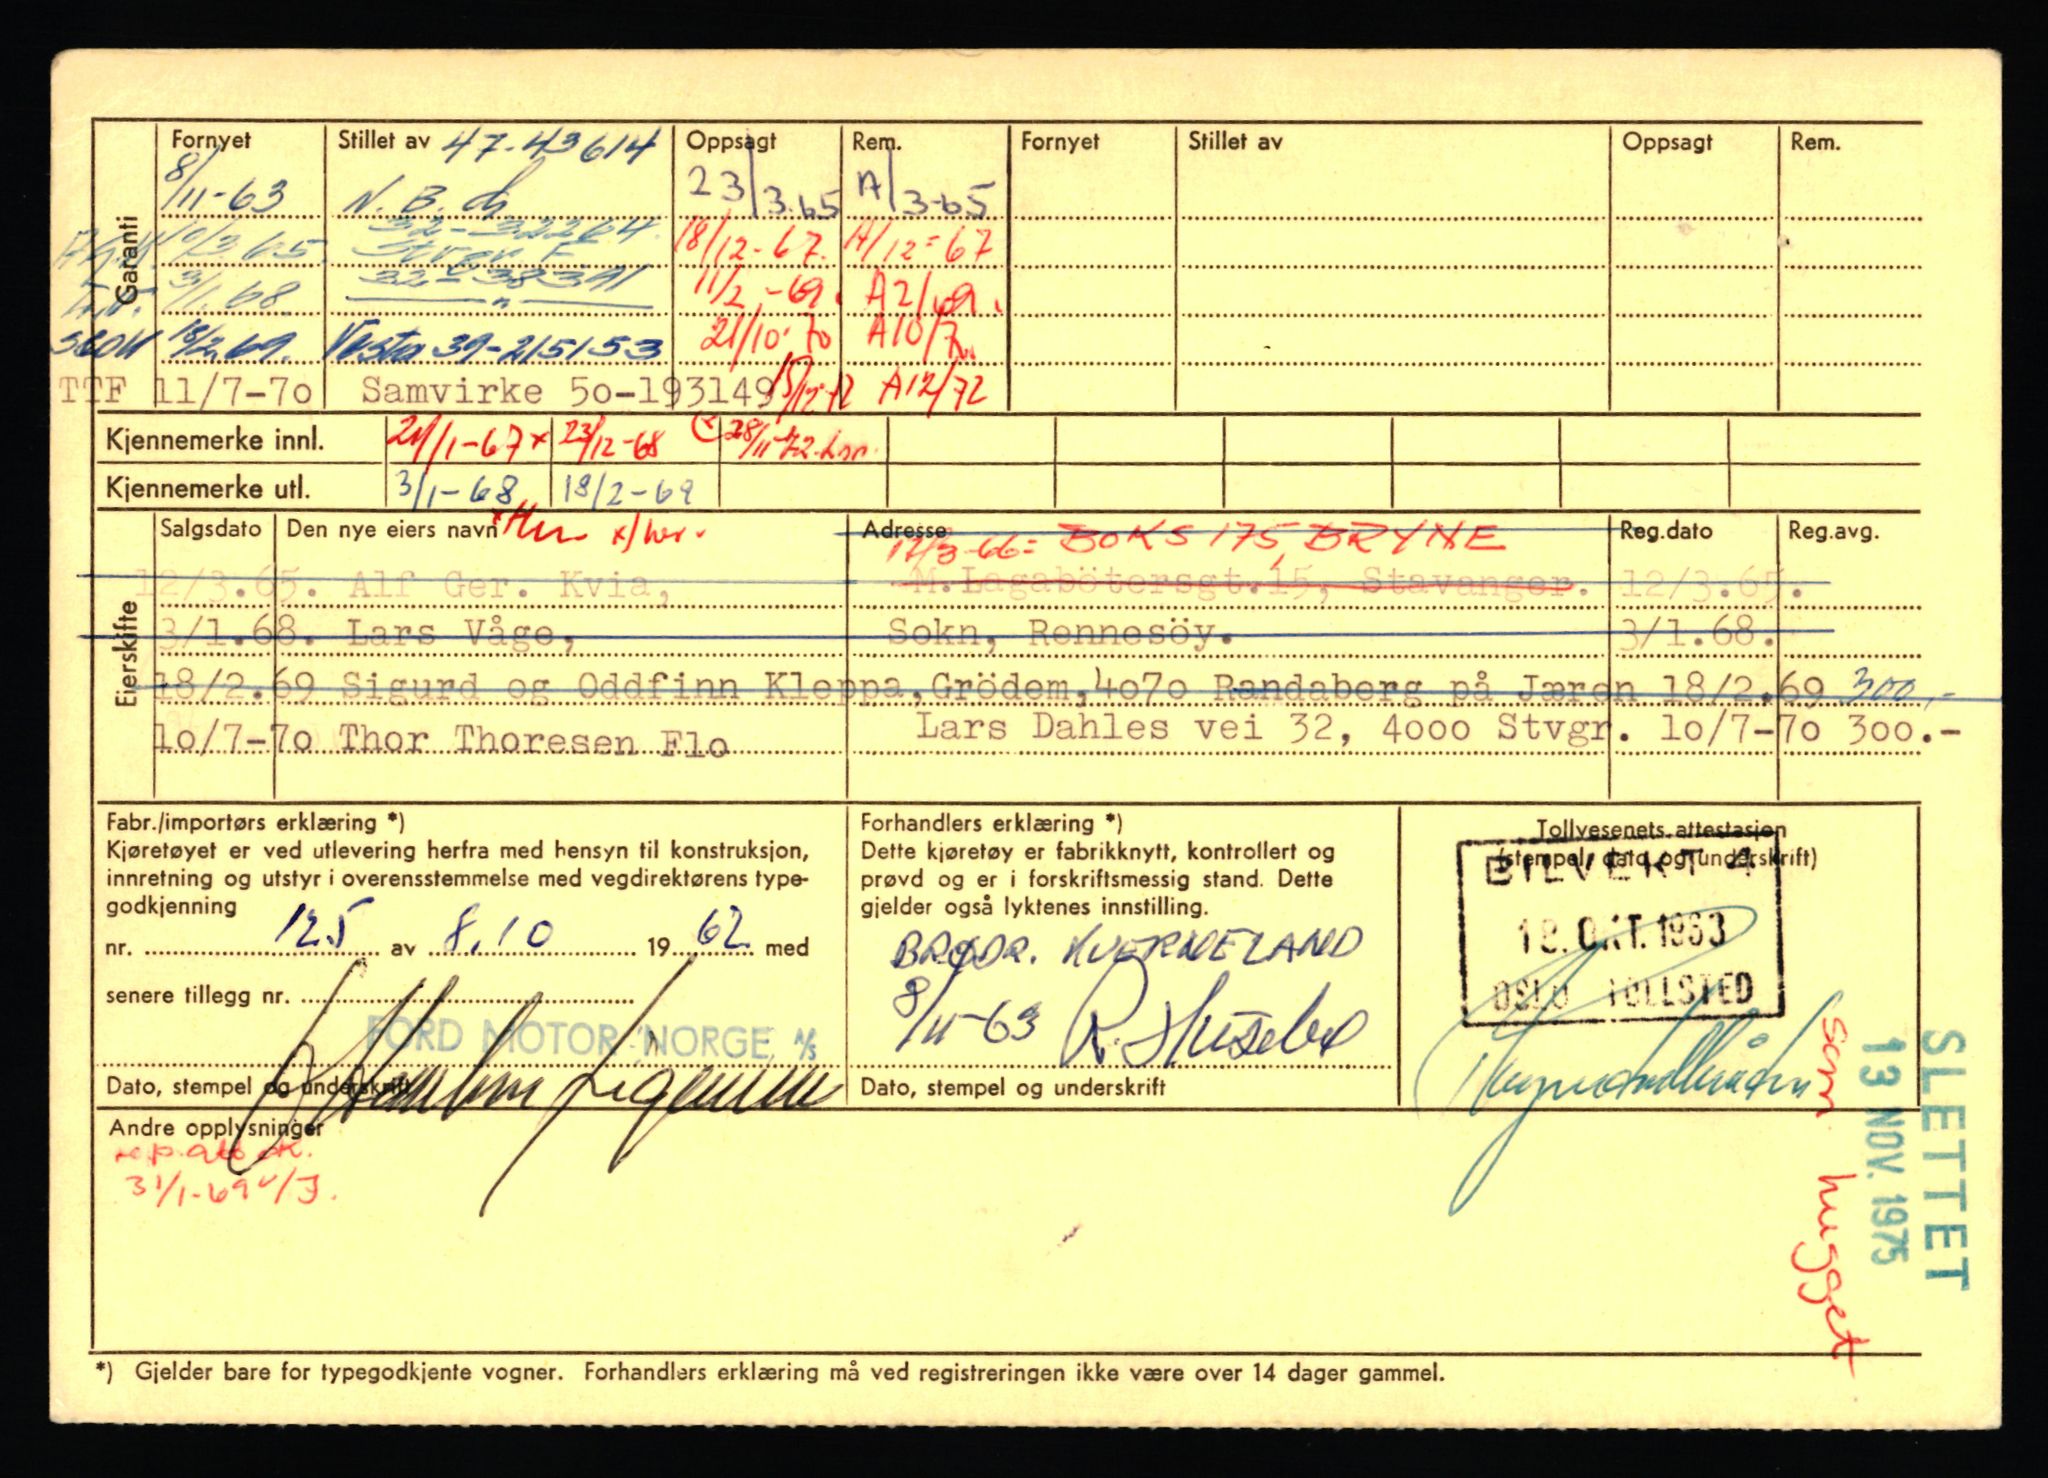 Garanti
Fornyet Stillet av 47-43614 Oppsagt Rem. Fornyet Stillet av Oppsagt Rem.
8/11-63 N.B. 23/3.65 A/3-65
10/3 65 32-32264 18/12-67. A/12=67
Stvgr. F.
3/1.68. 32-38391 11/2-69. A2/69.
18/2.69. Vesta 39-215153 21/10.70 A10/70.
TTF 11/7-70 Samvirke 50-193149 15/12-72 A12/72
Kjennemerke innl. 21/1-67 x 23/12-68 28/11-72
Kjennemerke utl. 3/1-68 18/2-69
Eierskifte
Salgsdato Den nye eiers navn Adresse Reg.dato Reg.avg.
17/3-66= BOKS 175, BRYNE
12/3.65. Alf Ger. Kvia, M.Lagabötersgt.15, Stavanger. 12/3.65.
3/1.68. Lars Våge, Sokn, Rennesöy. 3/1.68.
18/2.69 Sigurd og Oddfinn Kleppa, Grödem, 4070 Randaberg på Jæren 18/2.69 300,-
10/7-70 Thor Thoresen Flo Lars Dahles vei 32, 4000 Stvgr. 10/7-70 300.-
Fabr./importørs erklæring *)
Kjøretøyet er ved utlevering herfra med hensyn til konstruksjon,
innretning og utstyr i overensstemmelse med vegdirektørens type-
godkjenning
nr. 125 av 8.10 19 62 med
senere tillegg nr.
FORD MOTOR NORGE A/S
Dato, stempel og underskrift
Forhandlers erklæring *)
Dette kjøretøy er fabrikknytt, kontrollert og
prøvd og er i forskriftsmessig stand. Dette
gjelder også lyktenes innstilling.
BRØDR. KVERNELAND
8/11-63
Dato, stempel og underskrift
Tollvesenets attestasjon
(stempel, dato og underskrift)
BILVEKT 4
18. OKT. 1963
OSLO TOLLSTED
SLETTET
13 NOV. 1975
som hugget
Andre opplysninger
31/1-69
*) Gjelder bare for typegodkjente vogner. Forhandlers erklæring må ved registreringen ikke være over 14 dager gammel.